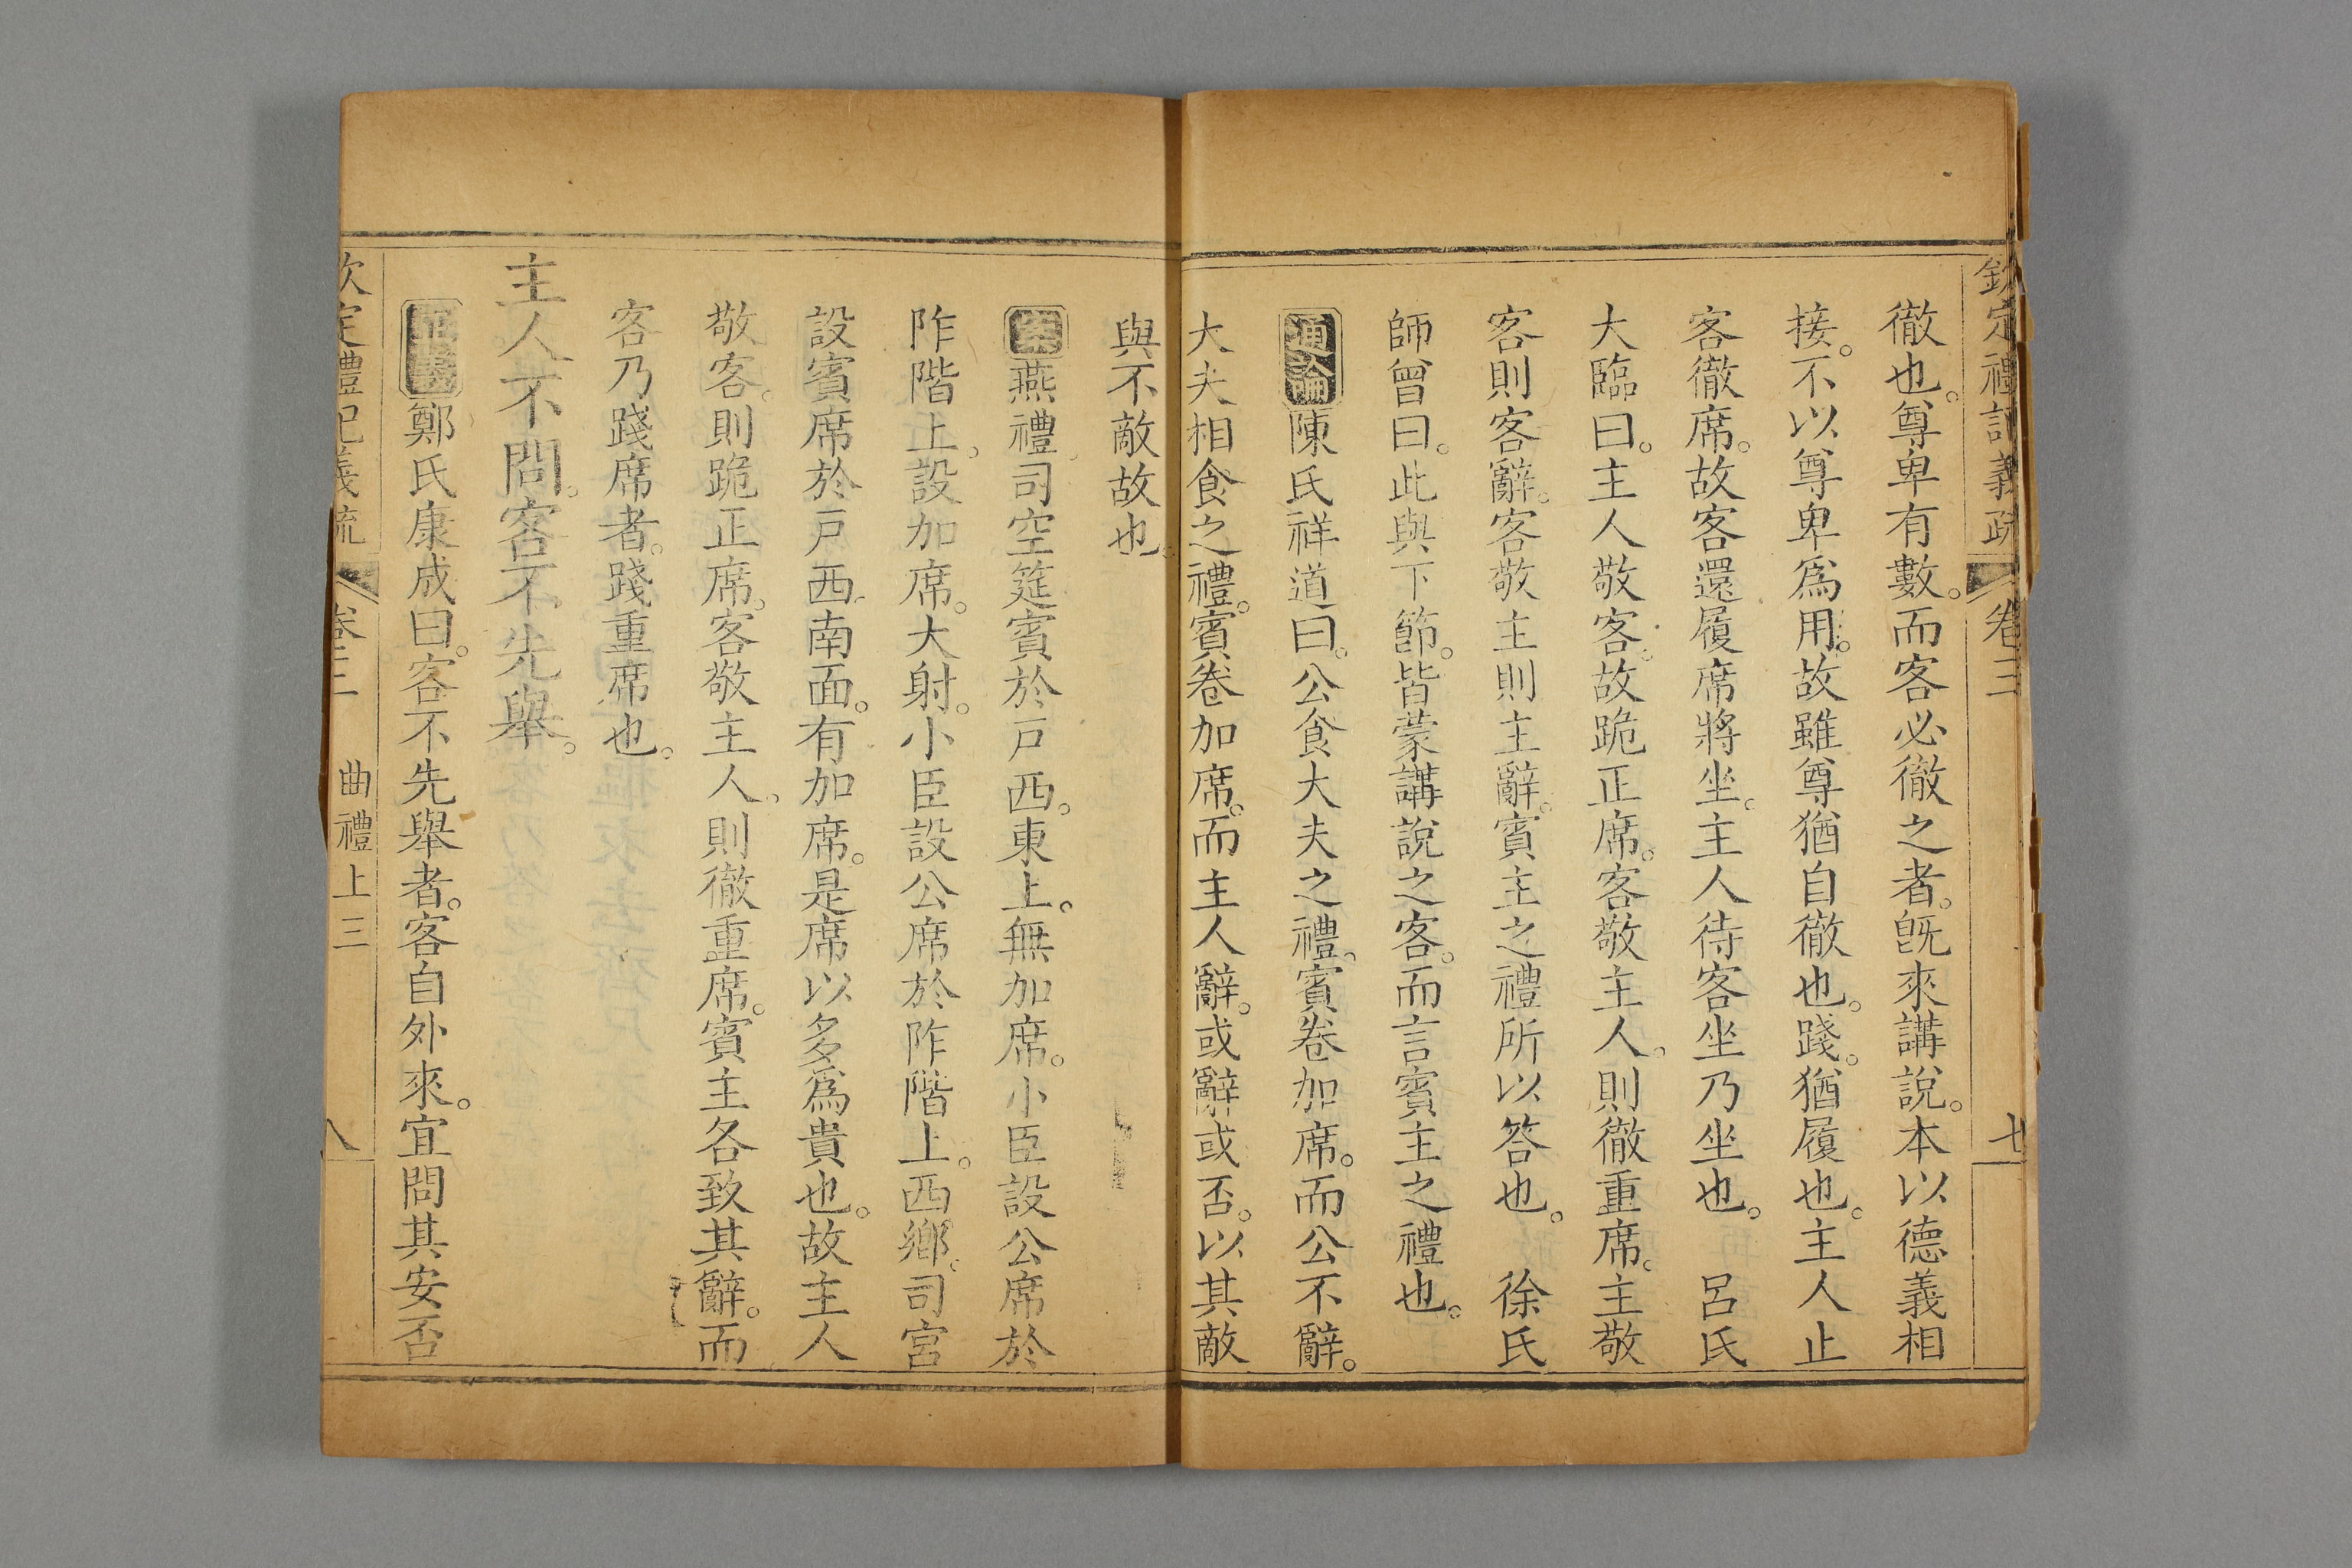 欽定禮記義疏 卷三 七
徹也。尊卑有數。而客必徹之者。旣來講說。本以德義相
接。不以尊卑爲用。故雖尊猶自徹也。踐。猶履也。主人止
客徹席。故客還履席將坐。主人待客坐乃坐也。 呂氏
大臨曰。主人敬客。故跪正席。客敬主人。則徹重席。主敬
客則客辭。客敬主則主辭。賓主之禮所以答也。 徐氏
師曾曰。此與下節。皆蒙講說之客。而言賓主之禮也。
通論陳氏祥道曰。公食大夫之禮。賓卷加席。而公不辭。
大夫相食之禮。賓卷加席。而主人辭。或辭或否。以其敵
與不敵故也。
案燕禮司空筵賓於戸西。東上。無加席。小臣設公席於
阼階上。設加席。大射。小臣設公席於阼階上。西鄉。司宮
設賓席於戸西南面。有加席。是席以多爲貴也。故主人
敬客。則跪正席。客敬主人。則徹重席。賓主各致其辭。而
客乃踐席者。踐重席也。
主人不問。客不先舉。
正義鄭氏康成曰。客不先舉者。客自外來。宜問其安否
欽定禮記義疏 卷三 曲禮上三 八